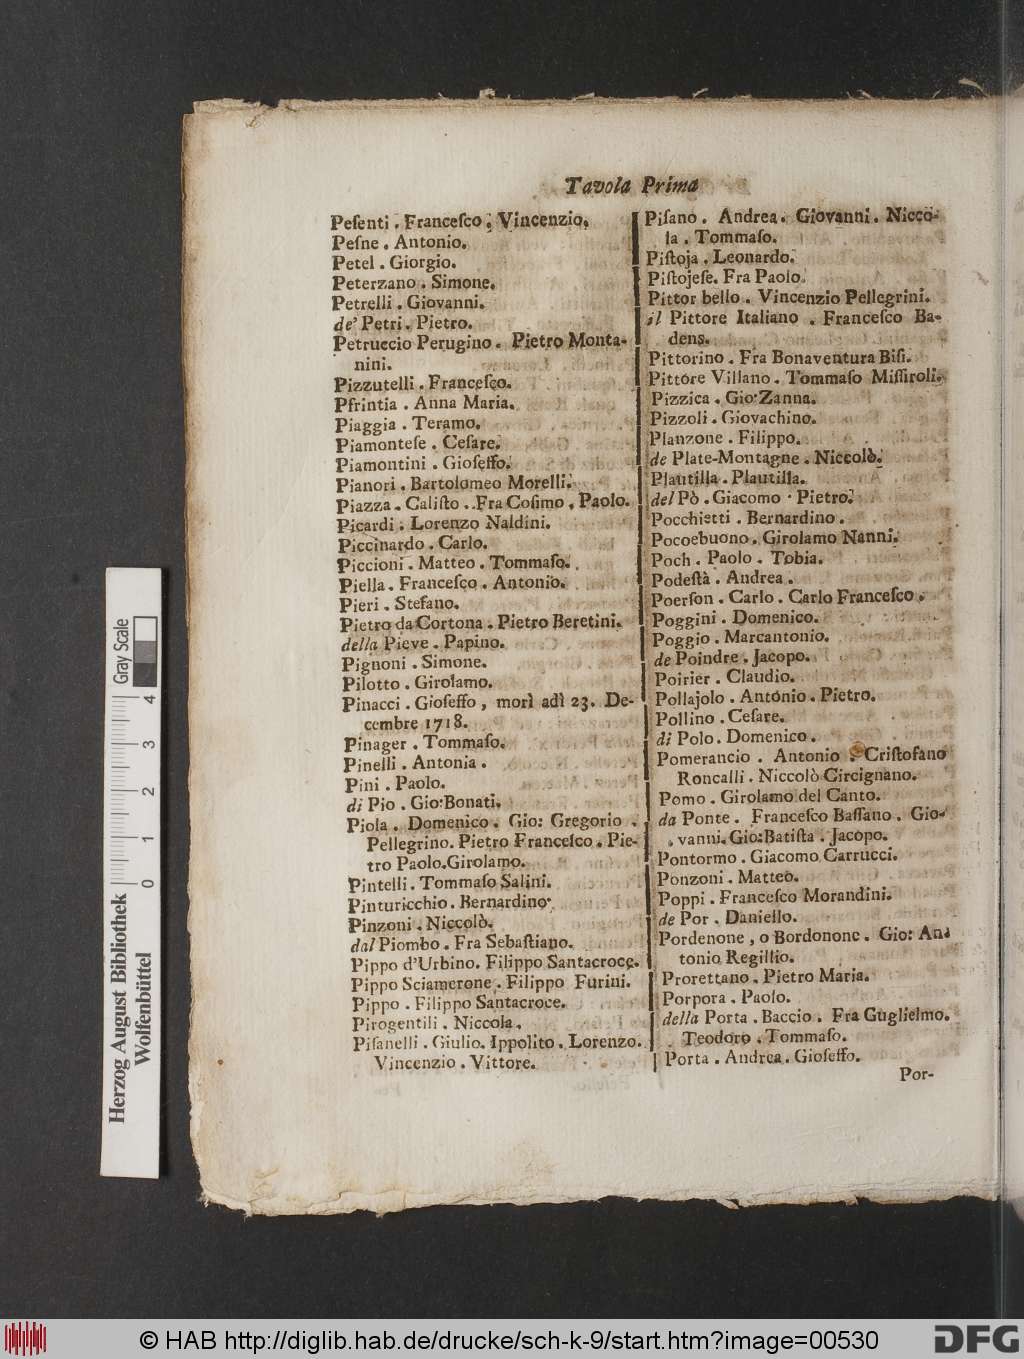 Tavola Prima
Peſenti . Franceſco . Vincenzio.
Peſne . Antonio.
Petel . Giorgio.
Peterzano . Simone.
Petrelli . Giovanni.
de' Petri . Pietro.
Petruccio Perugino . Pietro Monta-
nini.
Pizzutelli . Franceſco.
Pfrintia . Anna Maria.
Piaggia . Teramo.
Piamonteſe . Ceſare.
Piamontini . Gioſeffo.
Pianori . Bartolomeo Morelli.
Piazza . Caliſto . Fra Coſimo . Paolo.
Picardi . Lorenzo Naldini.
Piccinardo . Carlo.
Piccioni . Matteo . Tommaſo.
Piella . Franceſco . Antonio.
Pieri . Stefano.
Pietro da Cortona . Pietro Beretini.
della Pieve . Papino.
Pignoni . Simone.
Pilotto . Girolamo.
Pinacci . Gioſeffo , morì adì 23. De-
cembre 1718.
Pinager . Tommaſo.
Pinelli . Antonia .
Pini . Paolo.
di Pio . Gio: Bonati.
Piola . Domenico . Gio: Gregorio .
Pellegrino. Pietro Franceſco . Pie-
tro Paolo. Girolamo.
Pintelli . Tommaſo Salini.
Pinturicchio . Bernardino.
Pinzoni . Niccolò.
dal Piombo . Fra Sebaſtiano.
Pippo d'Urbino. Filippo Santacroce.
Pippo Sciamerone . Filippo Furini.
Pippo . Filippo Santacroce.
Pirogentili . Niccola.
Piſanelli . Giulio. Ippolito . Lorenzo.
Vincenzio . Vittore.
Piſano . Andrea . Giovanni . Nicco-
la . Tommaſo.
Piſtoja . Leonardo.
Piſtojeſe. Fra Paolo.
Pittor bello . Vincenzio Pellegrini.
il Pittore Italiano . Franceſco Ba-
dens.
Pittorino . Fra Bonaventura Biſi.
Pittore Villano . Tommaſo Miſſiroli.
Pizzica . Gio: Zanna.
Pizzoli . Giovachino.
Planzone . Filippo.
de Plate-Montagne . Niccolò.
Plautilla . Plautilla.
del Pò . Giacomo . Pietro.
Pocchietti . Bernardino .
Pocoebuono . Girolamo Nanni.
Poch . Paolo . Tobia.
Podeſtà . Andrea .
Poerſon . Carlo . Carlo Franceſco .
Poggini . Domenico.
Poggio . Marcantonio.
de Poindre . Jacopo.
Poirier . Claudio.
Pollajolo . Antonio . Pietro.
Pollino . Ceſare.
di Polo . Domenico .
Pomerancio . Antonio . Criſtofano
Roncalli . Niccolò Circignano.
Pomo . Girolamo del Canto.
da Ponte . Franceſco Baſſano . Gio-
vanni. Gio: Batiſta . Jacopo.
Pontormo . Giacomo Carrucci.
Ponzoni . Matteo.
Poppi . Franceſco Morandini.
de Por . Daniello.
Pordenone , o Bordonone . Gio: An-
tonio Regillio.
Prorettano . Pietro Maria.
Porpora . Paolo.
della Porta . Baccio . Fra Guglielmo.
Teodoro . Tommaſo.
Porta . Andrea . Gioſeffo.
Por-
Gray Scale
0 1 2 3 4
Herzog August Bibliothek
Wolfenbüttel
© HAB http://diglib.hab.de/drucke/sch-k-9/start.htm?image=00530
DFG